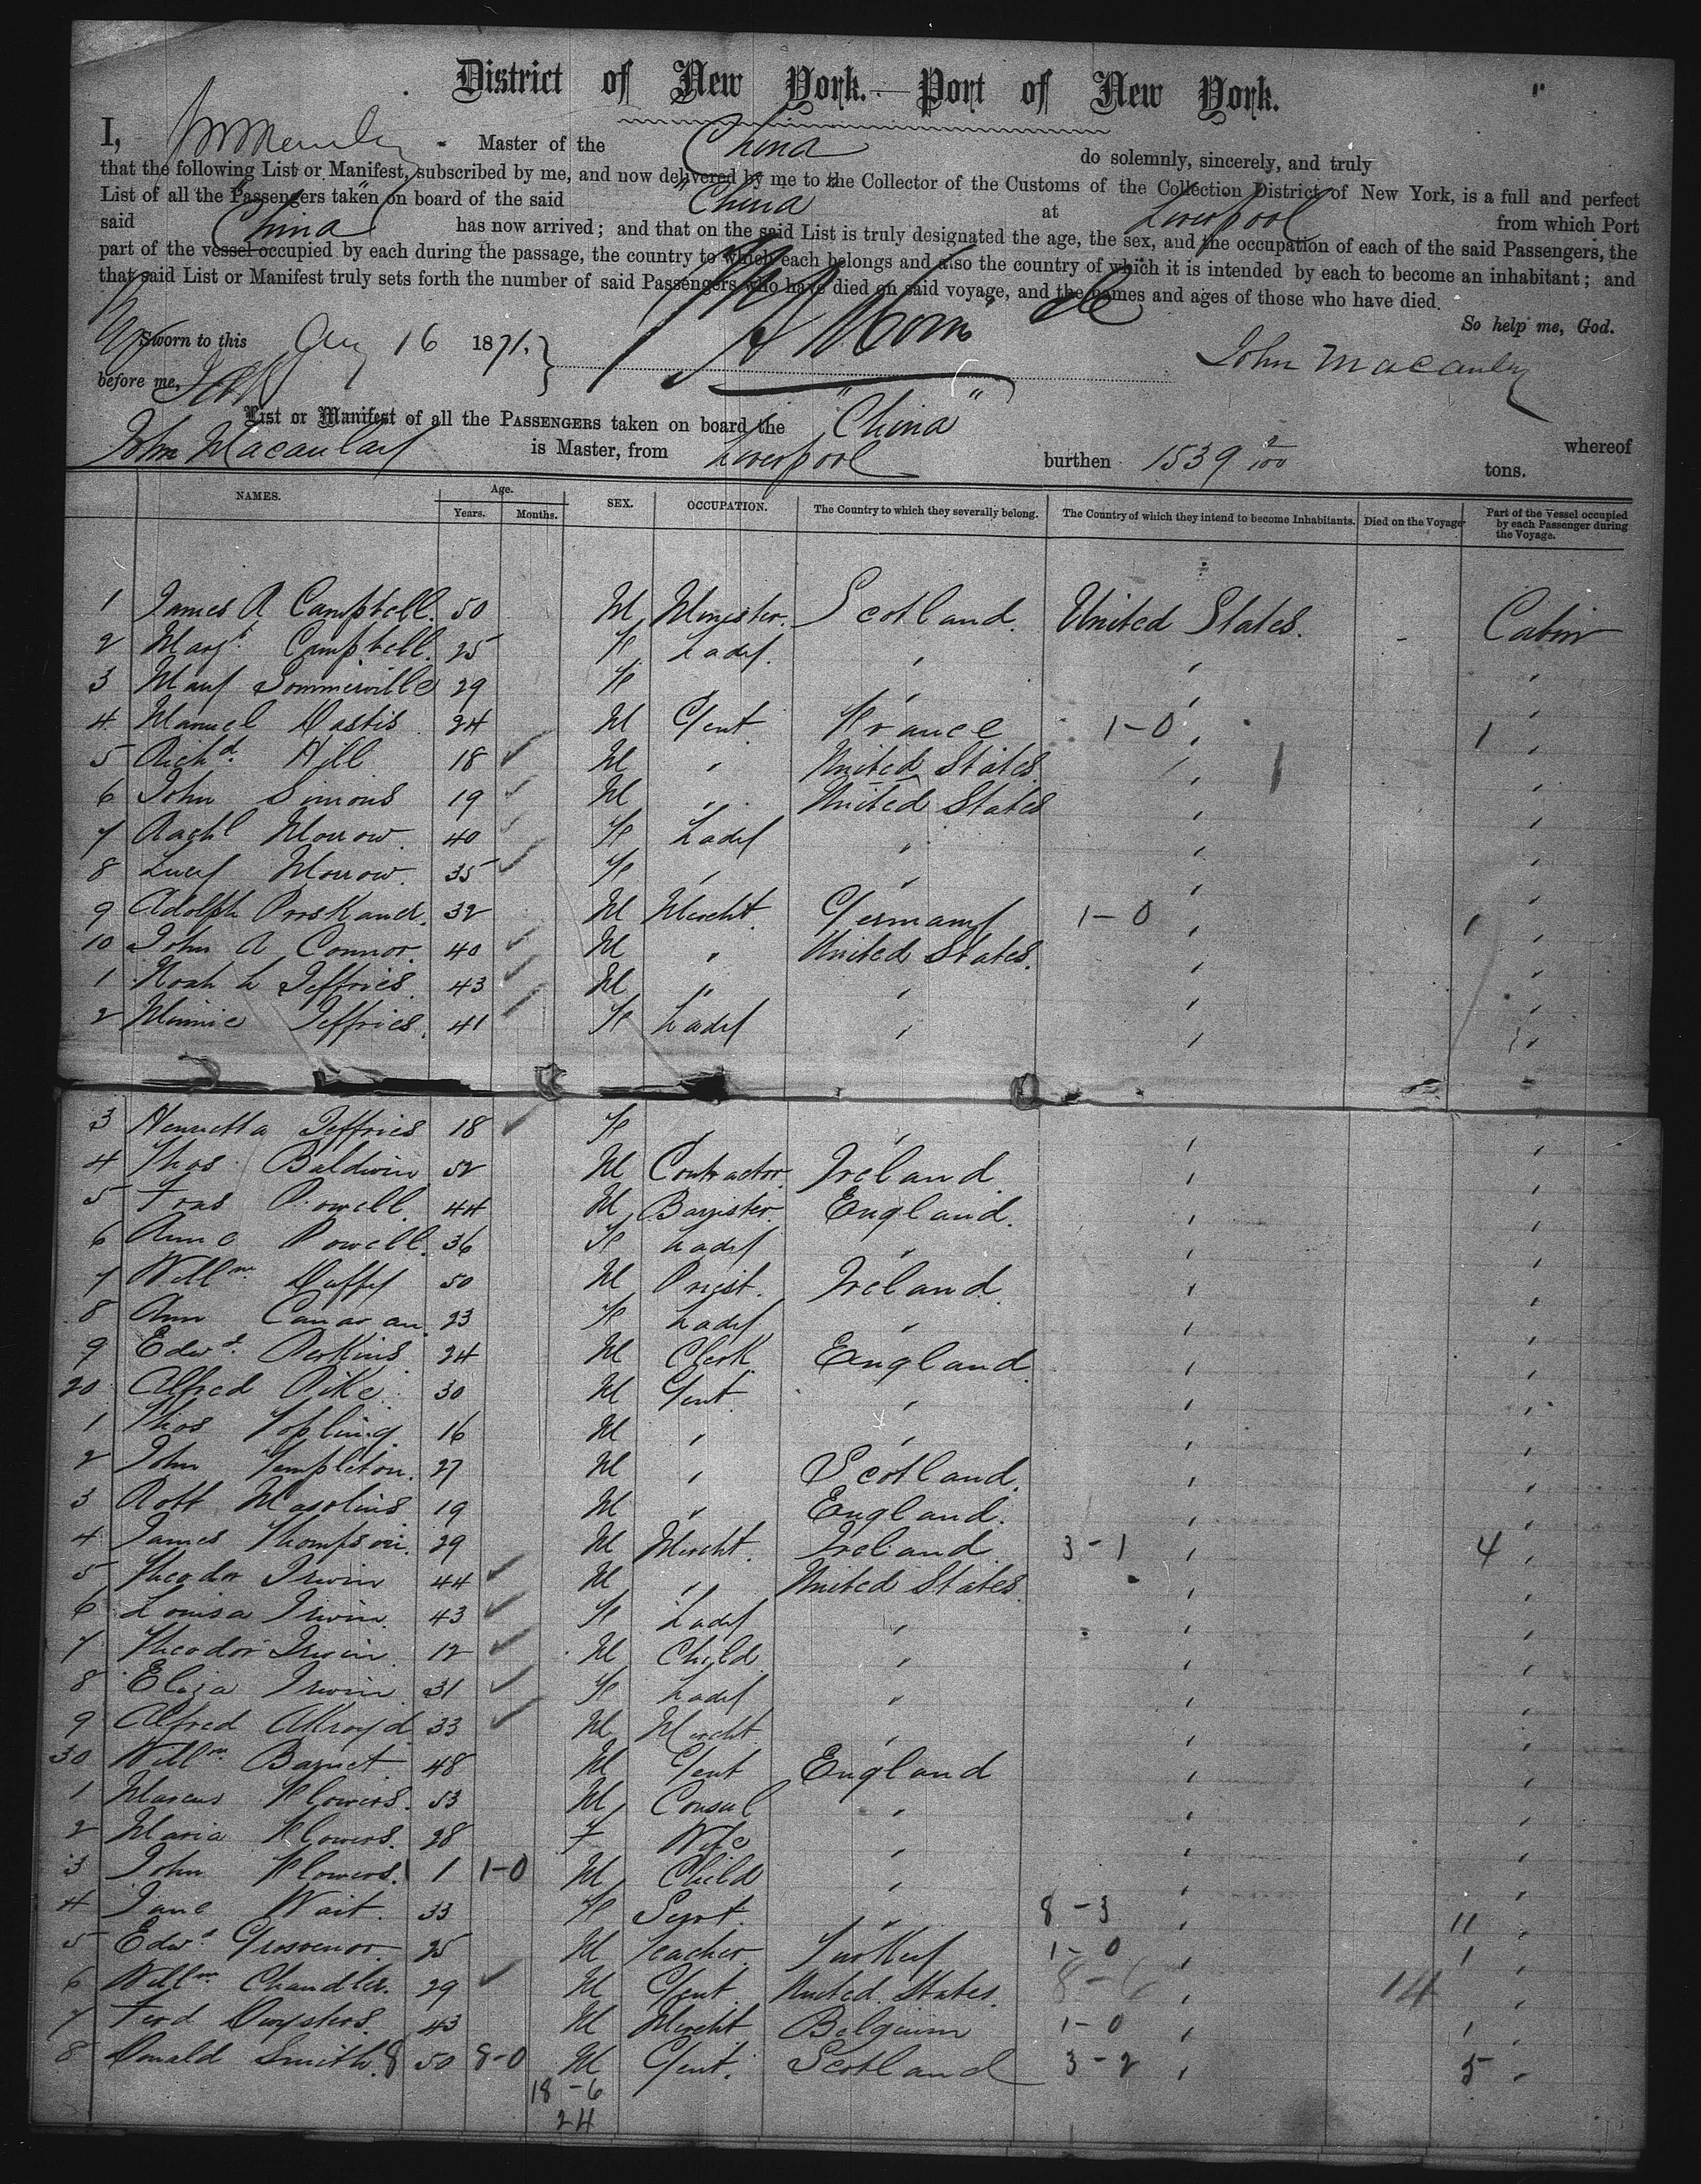 District of New York.—Port of New York.
I, Master of the China do solemnly, sincerely, and truly
that the following List or Manifest, subscribed by me, and now delivered by me to the Collector of the Customs of the Collection District of New York, is a full and perfect
List of all the Passengers taken on board of the said "China" at Liverpool from which Port
said "China" has now arrived; and that on the said List is truly designated the age, the sex, and the occupation of each of the said Passengers, the
part of the vessel occupied by each during the passage, the country to which each belongs and also the country of which it is intended by each to become an inhabitant; and
that said List or Manifest truly sets forth the number of said Passengers who have died on said voyage, and the names and ages of those who have died.
So help me, God.
Sworn to this Aug 16 1871. John Macaulay
before me,
List or Manifest of all the PASSENGERS taken on board the "China" whereof
John Macaulay is Master, from Liverpool burthen 1539 2/100 tons.
NAMES. Age. Years. Months. SEX. OCCUPATION. The Country to which they severally belong. The Country of which they intend to become Inhabitants. Died on the Voyage Part of the Vessel occupied by each Passenger during the Voyage.
1 James A Campbell. 50 M Minister. Scotland. United States. - Cabin
2 Margt. Campbell. 25 F Lady. " " "
3 Mary Sommerville 29 F " " "
4 Manuel Dastis 24 M Gent France 1-0 " 1 "
5 Richd. Hill 18 M " United States. " "
6 John Simons 19 M " United States " "
7 Rachl Morrow. 40 F Lady " " "
8 Lucy Morrow. 35 F " " " "
9 Adolph Proskand. 32 M Mercht. Germany 1-0 " 1 "
10 John A Connor. 40 M " United States. " "
1 Noah L Jeffries. 43 M " " " "
2 Minnie Jeffries. 41 F Lady " " "
3 Henrietta Jeffries 18 F " " " "
4 Thos Baldwin 52 M Contractor. Ireland. " "
5 Fras Powell. 44 M Barrister. England. " "
6 Anne Powell. 36 F Lady " " "
7 Willm. Duffy 50 M Priest. Ireland. " "
8 Ann Canavan. 23 F Lady " " "
9 Edwd. Perkins 24 M Clerk England. " "
20 Alfred Pike. 30 M Gent. " " "
1 Thos Topling. 16 M " " " "
2 John Templeton. 27 M " Scotland. " "
3 Robt 19 M " England. " "
4 James Thompson. 29 M Mercht. Ireland. 3-1 " 4 "
5 Theodor Irwin 44 M " United States " "
6 Louisa Irwin. 43 F Lady " " "
7 Theodor Irwin 12 M Child " " "
8 Eliza Irwin 31 F Lady " " "
9 Alfred Akroyd 33 M Mercht " " "
30 Willm. Barnet 48 M Gent England " "
1 Marcus Flowers. 53 M Consul " " "
2 Maria Flowers. 28 F Wife " " "
3 John Flowers. 1 1-0 M Child " " "
4 Jane Wait. 33 F Servt. " 8-3 " 11 "
5 Edwd. Grosvenor. 25 M Teacher. Turkey 1-0 " 1 "
6 Willm. Chandler. 29 M Gent United States. 8-6 " 14 "
7 Ferd 43 M Mercht Belgium 1-0 " 1 "
8 Donald Smith. 8 50 8-0 M Gent. Scotland 3-2 " 5 "
18-6
24